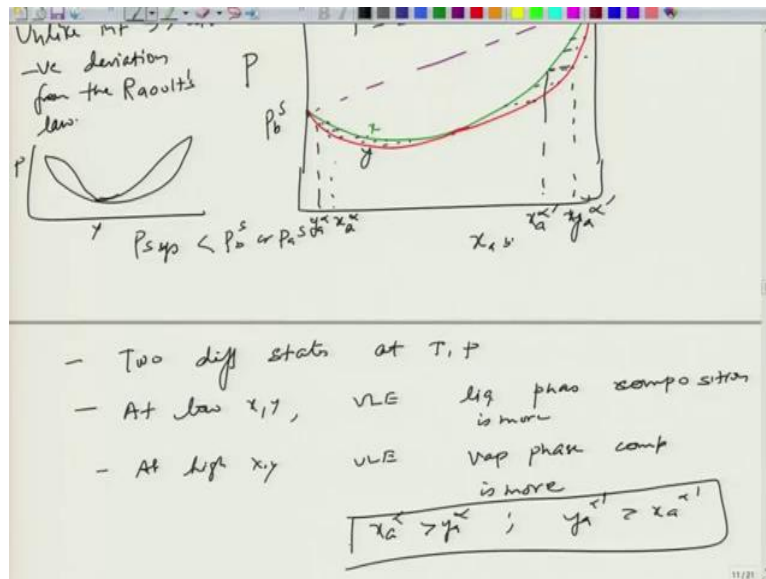 Unlike int >>
-ve deviation
from the Raoult's
law.
P
P_b^s
x
y
P
y
P_sys < P_b^s or P_a^s
y_a^α x_a^α
x_a^α' y_a^α'
x_a
- Two diff states at T, P
- At low x, y, VLE liq phas composition
is more
- At high x, y VLE vap phase comp
is more
x_a^α > y_a^α ; y_a^α' > x_a^α'
11/21